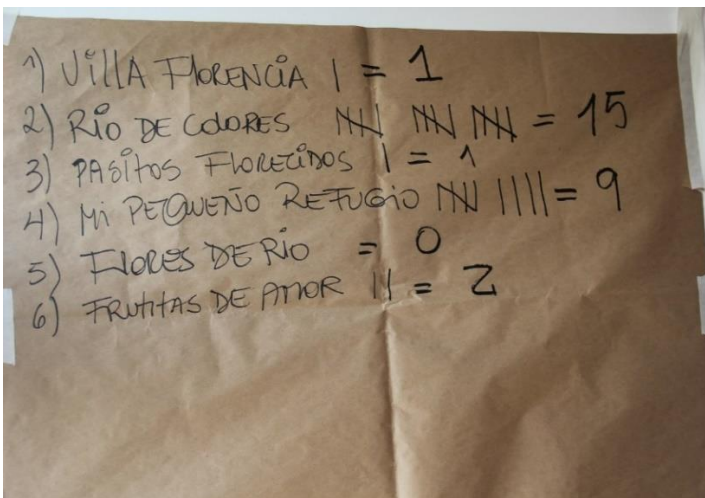 1) Villa Florencia | = 1
2) Río de Colores |||| |||| |||| = 15
3) Pasitos Florecidos | = 1
4) Mi Pequeño Refugio |||| |||| = 9
5) Flores de Río = 0
6) Frutitas de Amor || = 2